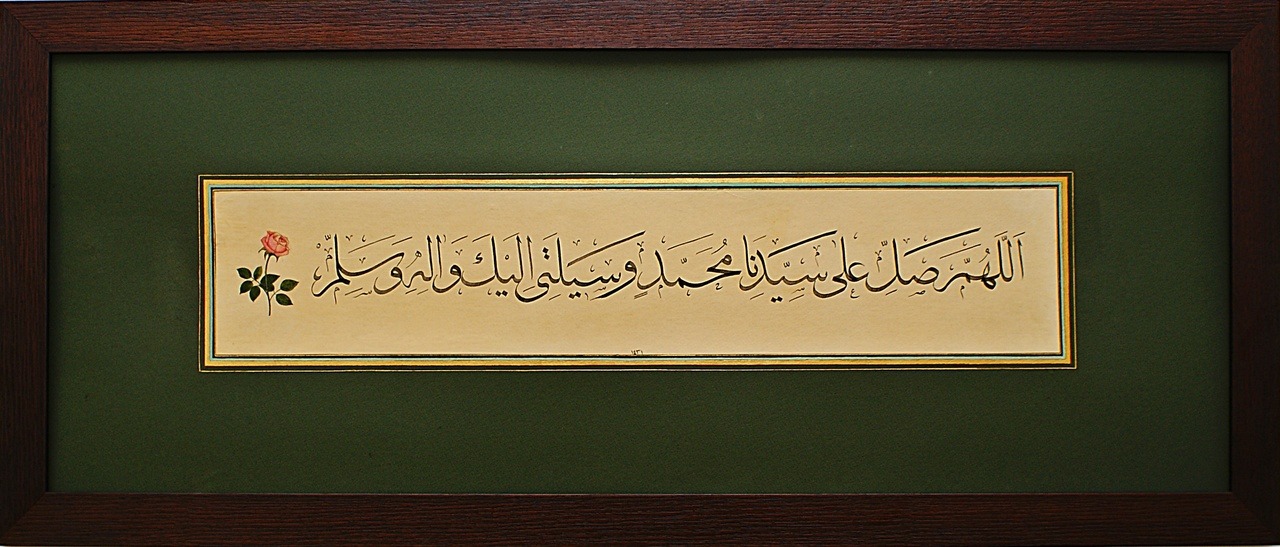 اَللّٰهُمَّ صَلِّ عَلٰى سَيِّدِنَا مُحَمَّدٍ وَسيلَتى اِلَيْكَ وَاٰلِهِ وَسَلِّمْ
١٤٣١